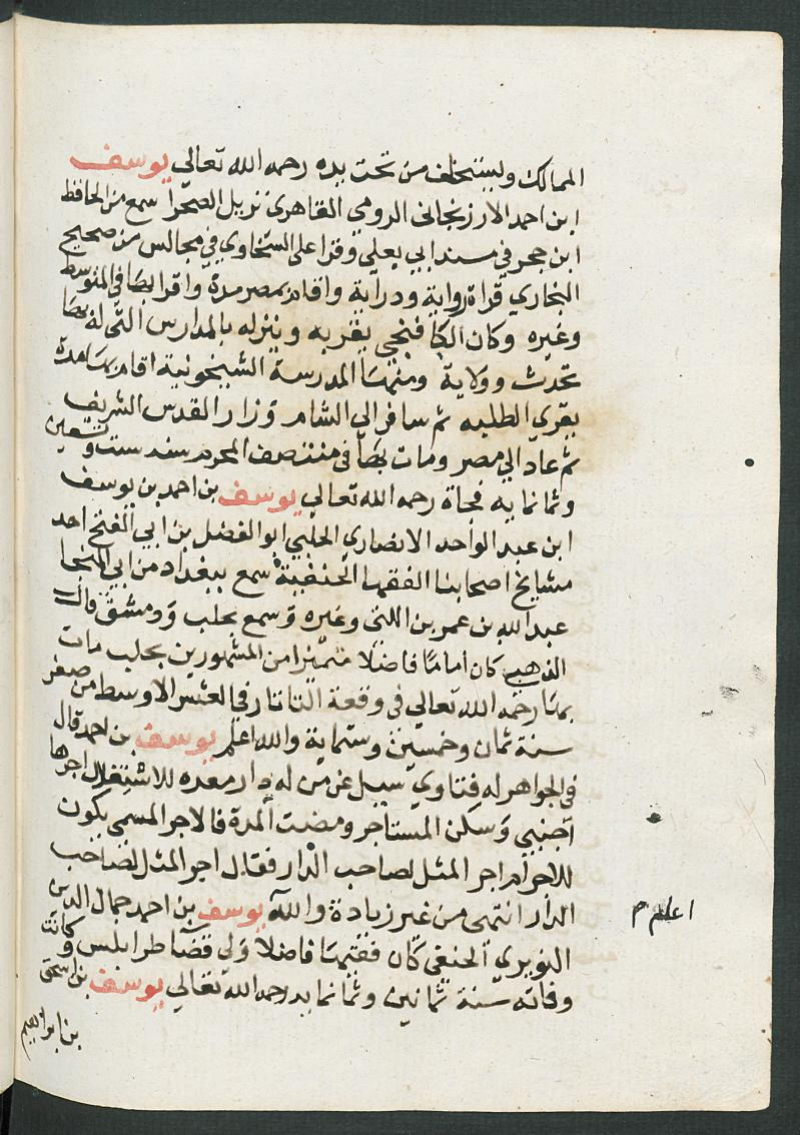 الممالك وليستخلف من تحت يده رحمه الله تعالى يوسف
ابن احمد الارزنجاني الرومي القاهري نزيل الصحرا سمع من الحافظ
ابن حجر في مسند ابي يعلى وقرا على السخاوي في مجالس من صحيح
البخاري قراة رواية ودراية واقام بمصر مدة واقرا بها في المتوسط
وغيره وكان الكافنجي يقربه وينزله بالمدارس التي له بها
تحدث وولاية ومنها المدرسة الشيخونية اقام بها مدة
يقري الطلبه ثم سافر الي الشام وزار القدس الشريف
ثم عاد الي مصر ومات بها في منتصف المحرم سنه ست وتسعين
وثمانمايه فجاة رحمه الله تعالى يوسف بن احمد بن يوسف
ابن عبد الواحد الانصاري الحلبي ابو الفضل بن ابي الفتح احد
مشايخ اصحابنا الفقها الحنفية سمع ببغداد من ابي المنجا
عبد الله بن عمر بن اللتي وغيره وسمع بحلب ودمشق قال
الذهبي كان اماما فاضلا متميزا من المشهورين بحلب مات
بها رحمه الله تعالي في وقعة التاتار في العشر الاوسط من صفر
سنة ثمان وخمسين وستماية والله اعلم يوسف بن احمد قال
في الجواهر له فتاوي سيل عن من له دار معده للاشتغلال اجرها
اجنبي وسكن المستاجر ومضت المدة فالاجر المسمى يكون
للاجر ام اجر المثل لصاحب الدار فقال اجر المثل لصاحب
الدار انتهى من غير زيادة والله يوسف بن احمد جمال الدين
اعلم م
النويري الحنفي كان فقيها فاضلا ولي قضا طرابلس وكانت
وفاته سنة ثمانين وثمانمايه رحمه الله تعالي يوسف بن اسحق
بن ابراهيم